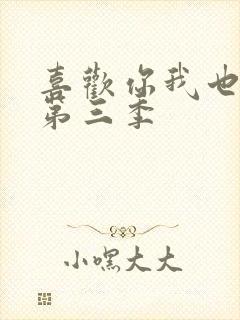 喜歡你我也
第三季
小嘿大大